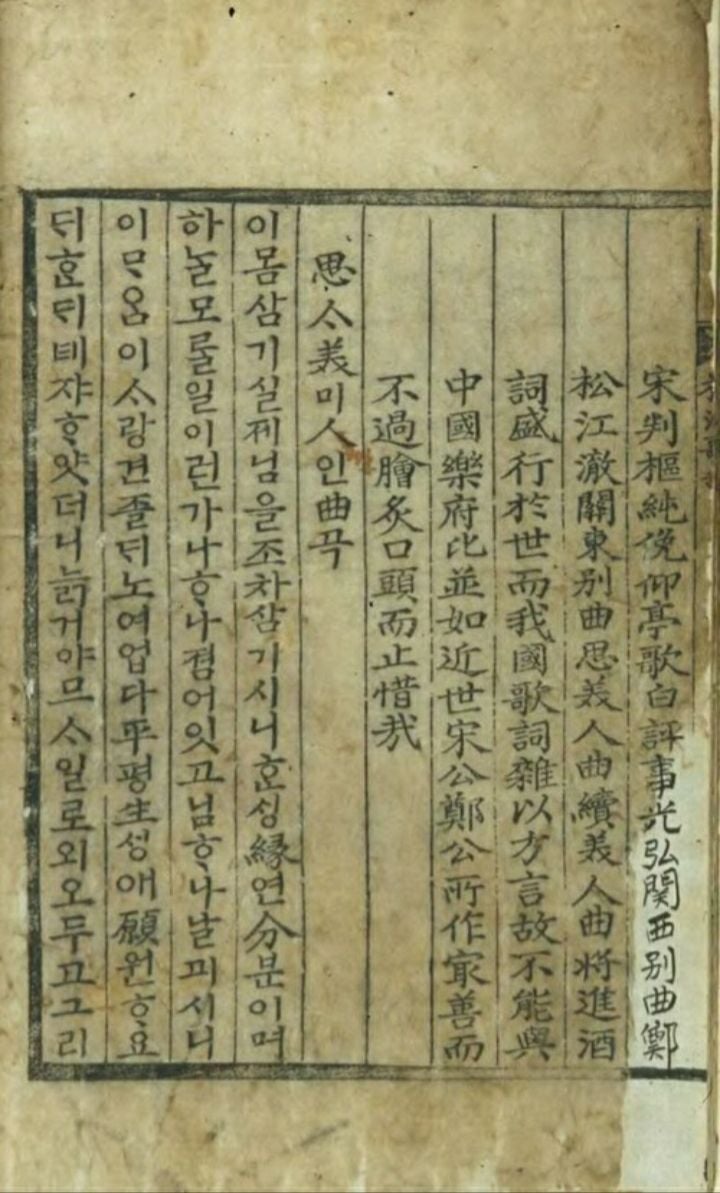 宋判樞純俛仰亭歌白評事光弘関西别曲鄭
松江澈關東别曲思美人曲續美人曲將進酒
詞盛行於世而我國歌詞雜以方言故不能與
中國樂府比並如近世宋公鄭公所作㝡善而
不過膾炙口頭而止惜哉
思ᄉᆞ美미人인曲곡
이몸삼기실제님을조차삼기시니ᄒᆞᆫᄉᆡᆼ緣연分분이며
하ᄂᆞᆯ모ᄅᆞᆯ일이런가나ᄒᆞ나졈어잇고님ᄒᆞ나날괴시니
이ᄆᆞᄋᆞᆷ이ᄉᆞ랑견졸ᄃᆡ노여업다平평生ᄉᆡᆼ애願원ᄒᆞ요
ᄃᆡᄒᆞᆫᄃᆡ녜쟈ᄒᆞ얏더니늙거야므ᄉᆞ일로외오두고그리